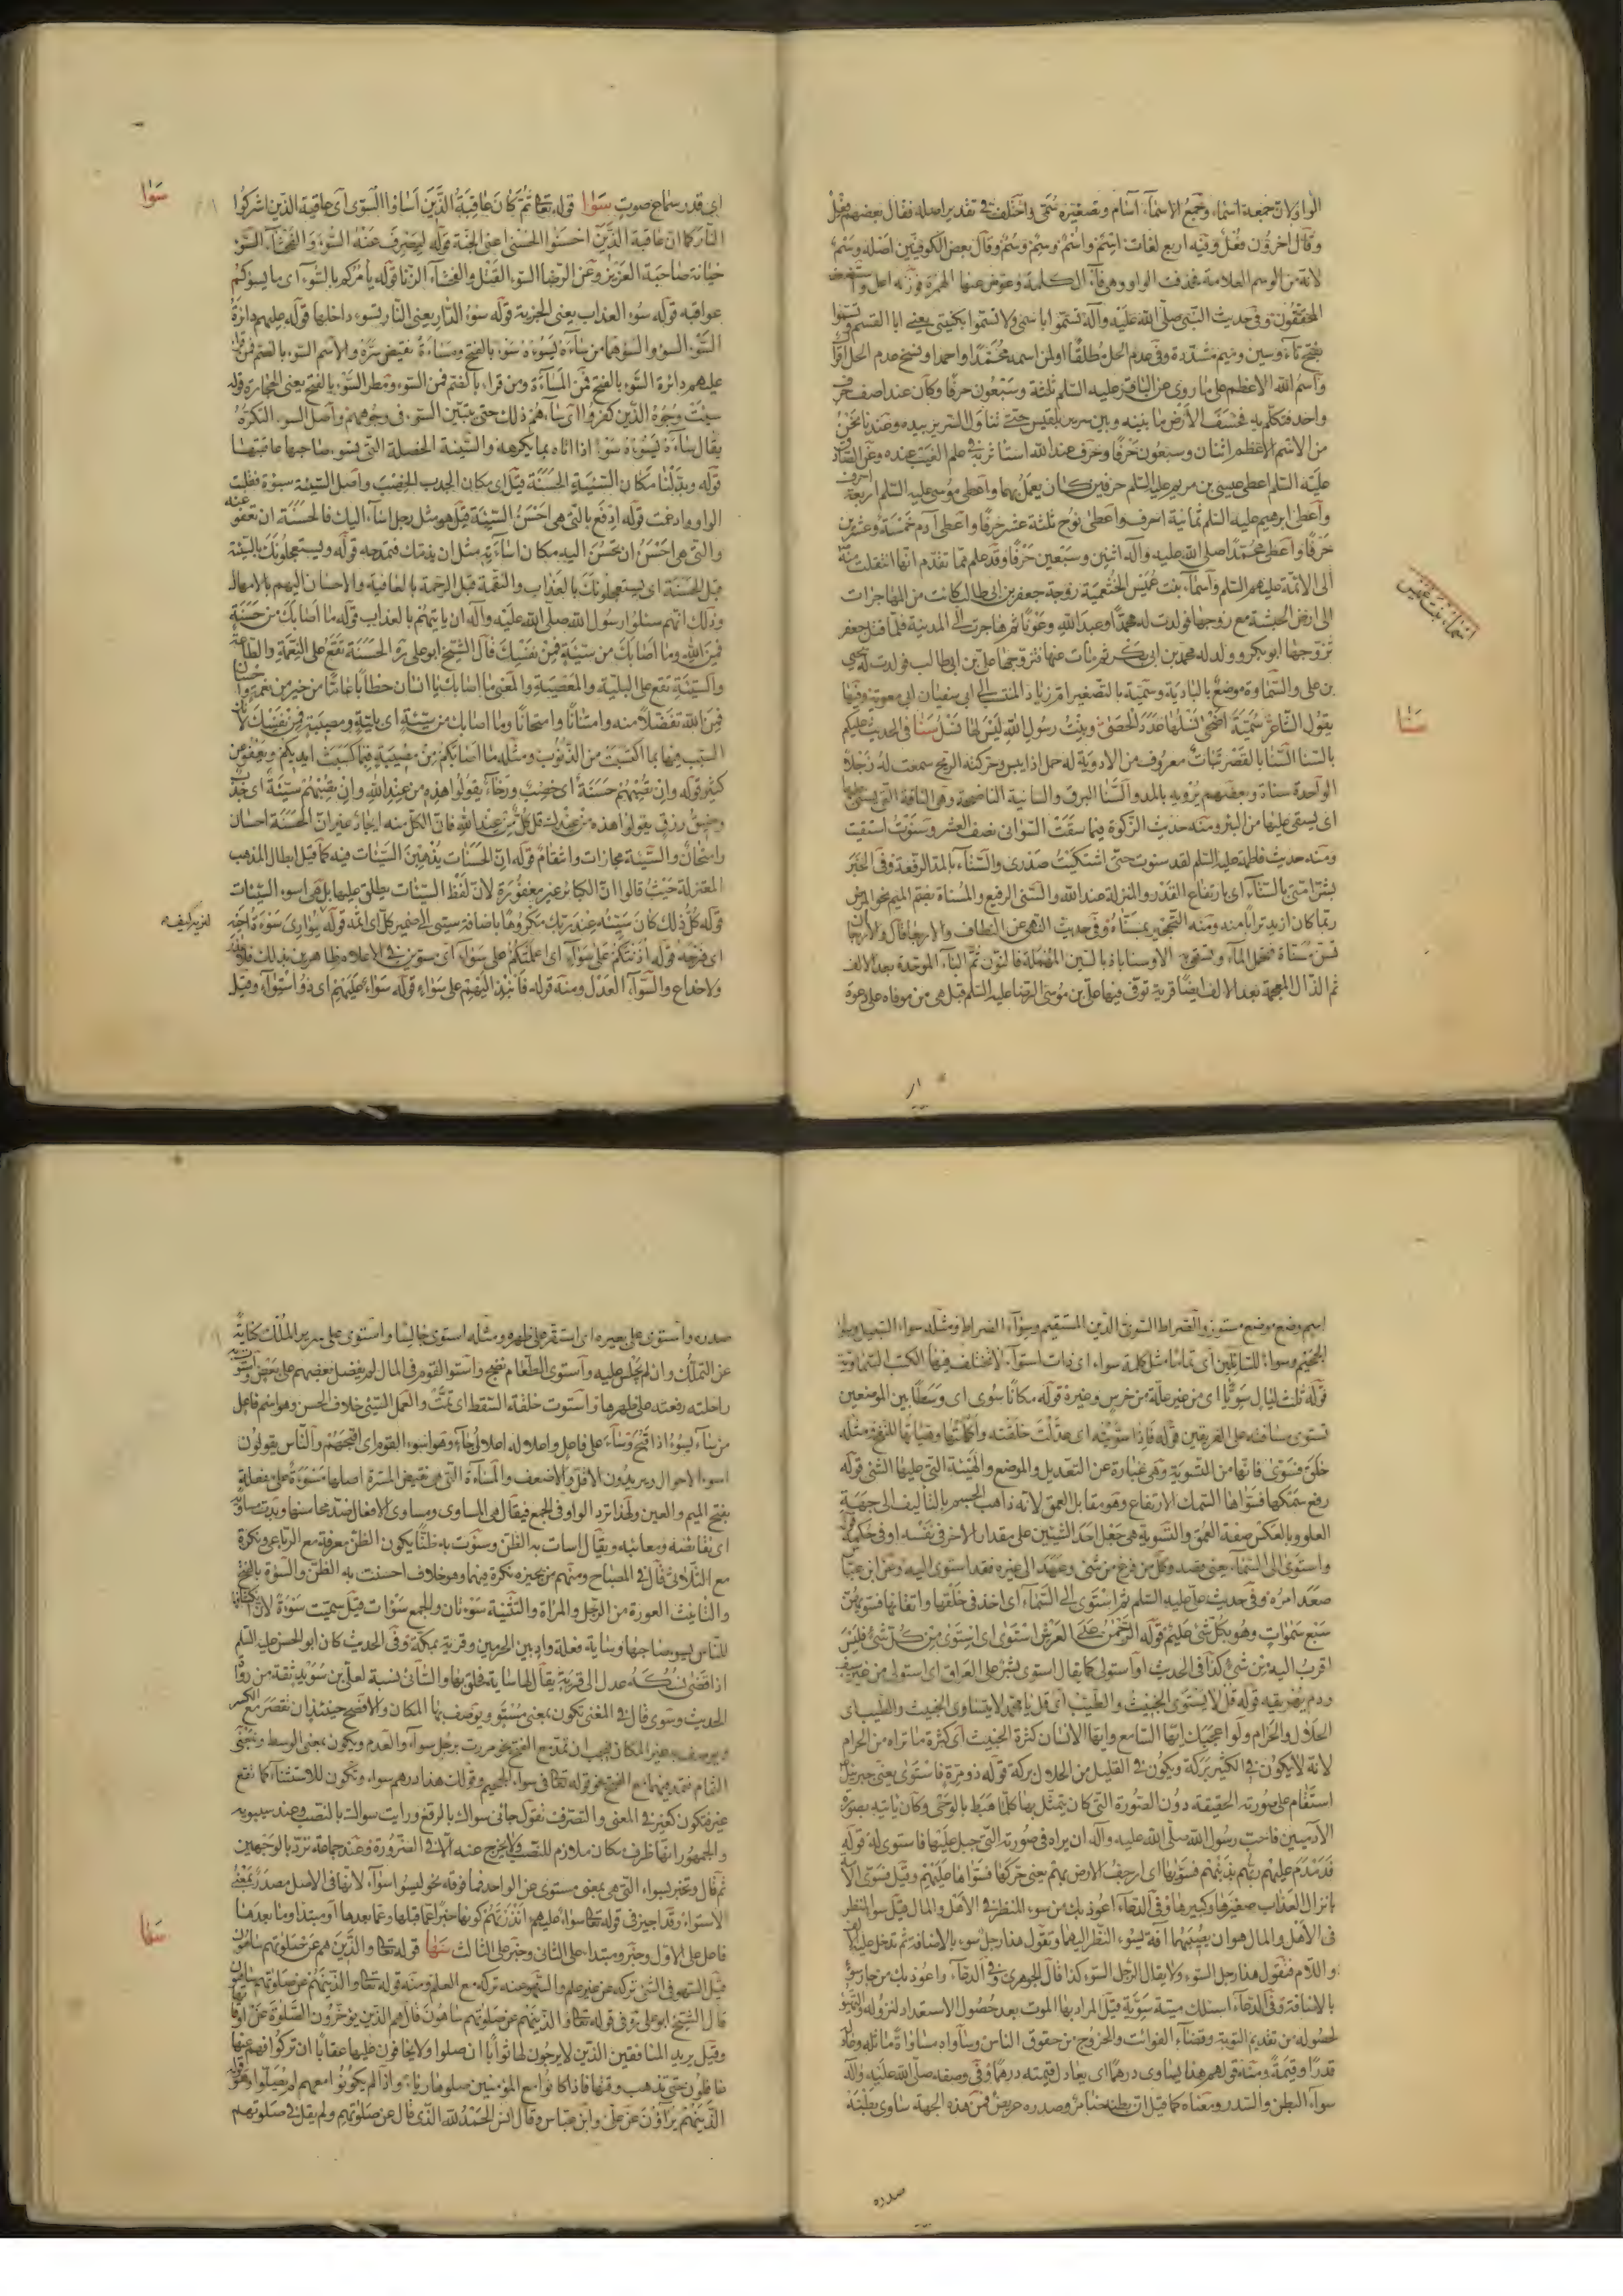 الواو لان جمعه اسماء وجمع الاسماء اسام وتصغيره سمي واختلف في تقدير اصله فقال بعضهم فعل
وقال اخرون فعل وفيه اربع لغات اسم واسم وسم وسم وقال بعض الكوفيين اصله وسم
لانه من الوسم العلامة فحذفت الواو وهي فاء الكلمة وعوض عنها الهمزة فوزنه اعل
المحققون وفي حديث النبي صلى الله عليه وآله تسموا باسمي ولا تسموا بكنيتي يعني ابا القسم
بفتح تاء وسين وميم مشددة وفي عدم الحل مطلقا او لمن اسمه محمد او احمد او نسخ عدم الحل
واسم الله الاعظم على ما روي عن الباقر عليه السلم ثلثة وسبعون حرفا وكان عند اصف حرف
واحد فتكلم به فخسف الارض ما بينه وبين سرير بلقيس حتى تناول السرير بيده وعندنا نحن
من الاسم الاعظم اثنان وسبعون حرفا وحرف عند الله استاثر به في علم الغيب عنده وعن الصادق
عليه السلم اعطي عيسى بن مريم عليه السلم حرفين كان يعمل بهما واعطي موسى عليه السلم اربعة احرف
واعطي ابرهيم عليه السلم ثمانية احرف واعطي نوح ثلثة عشر حرفا واعطي آدم خمسة وعشرين
حرفا واعطي محمد صلى الله عليه وآله اثنين وسبعين حرفا وقد علم مما تقدم انها انتقلت منه
الى الائمة عليهم السلم واسماء بنت عميس الخثعمية زوجة جعفر بن ابي طالب كانت من المهاجرات
اسماء بنت عميس
الى ارض الحبشة مع زوجها فولدت له محمدا وعبد الله وعونا ثم هاجرت الى المدينة فلما قتل جعفر
تزوجها ابو بكر وولد له محمد بن ابي بكر ثم مات عنها فتزوجها علي بن ابي طالب فولدت له يحيى
بن علي والسماوة موضع بالبادية وسمية بالتصغير ام زياد المنتسب الى ابي سفيان ابي معوية وفيها
يقول الشاعر سمية اضحى نسلها عدد الحصى وبنت رسول الله ليس لها نسل سنا في الحديث عليكم
سنا
بالسنا السنا بالقصر نبات معروف من الادوية له حمل اذا يبس وحركته الريح سمعت له زجلا
الواحدة سناة وبعضهم يرويه بالمد والسنا البرق والسانية الناضحة وهي الناقة التي يستقى عليها
اى يستقى عليها من البئر ومنه حديث الزكوة فيما سقت السواني نصف العشر وسنوت استقيت
ومنه حديث فاطمة عليها السلم لقد سنوت حتى اشتكيت صدري والسناء بالمد الرفعة وفي الخبر
بشر امتي بالسناء اى بارتفاع القدر والمنزلة عند الله والسني الرفيع والمسناة بضم الميم نحو المرز
ربما كان ازيد ترابا منه ومنه التحجير بمسناة وفي حديث النهي عن النطاف والاربعا قال والاربعا ان
تسنى مسناة فتحمل الماء وتسقي به الارض وسناباد بالسين المهملة فالنون ثم الباء الموحدة بعد الالف
ثم الذال المعجمة بعد الالف ايضا قرية توفي فيها علي بن موسى الرضا عليه السلم قيل هي من موقان على دعوة
اى قدر سماع صوت سوا قوله تعالى ثم كان عاقبة الذين اساؤا السوآى اى عاقبة الذين اشركوا
سوا
النار كما ان عاقبة الذين احسنوا الحسنى اعنى الجنة قوله ليصرف عنه السوء والفحشاء السوء
خيانة صاحبة العزيز وعن الرضا السوء القتل والفحشاء الزنا قوله يامركم بالسوء اى ما يسوكم
عواقبه قوله سوء العذاب يعنى الجزية قوله سوء الدار يعنى النار تسوء داخلها قوله عليهم دائرة
السوء السوء والسوء هما من ساءه يسوءه سوء بالفتح ومساءة نقيض سره والاسم السوء بالضم فمن قرأ
عليهم دائرة السوء بالفتح فمن المساءة ومن قراء بالضم فمن السوء ومطر السوء بالفتح يعنى الحجارة قوله
سيئت وجوه الذين كفروا اى ساءهم ذلك حتى يتبين السوء في وجوههم واصل السوء التكره
يقال ساءه يسوءه سوء اذا اتاه بما يكرهه والسيئة الخصلة التى تسوء صاحبها عاقبتها
قوله وبدلنا مكان السيئة الحسنة قيل اى مكان الجدب الخصب واصل السيئة سيوءة فقلبت
الواو وادغمت قوله ادفع بالتى هي احسن السيئة قيل هو مثل رجل اساء اليك فالحسنة ان تعفو عنه
والتى هي احسن ان تحسن اليه مكان اساءته مثل ان يذمك فتمدحه قوله ويستعجلونك بالسيئة
قبل الحسنة اى يستعجلونك بالعذاب والنقمة قبل الرحمة بالعافية والاحسان اليهم بالامهال
وذلك انهم سئلوا رسول الله صلى الله عليه وآله ان ياتيهم بالعذاب قوله ما اصابك من حسنة
فمن الله وما اصابك من سيئة فمن نفسك قال الشيخ ابو علي ره الحسنة تقع على النعمة والطاعة
والسيئة تقع على البلية والمعصية والمعنى ما اصابك يا انسان خطابا عاما من خير من نعمة واحسان
فمن الله تفضلا منه وامتنانا وامتحانا وما اصابك من سيئة اى بلية ومصيبة فمن نفسك لان
السبب فيها بما اكتسبت من الذنوب ومثله ما اصابكم من مصيبة فبما كسبت ايديكم ويعفو عن
كثير قوله وان تصبهم حسنة اى خصب ورخاء يقولوا هذه من عند الله وان تصبهم سيئة اى جدب
وضيق رزق يقولوا هذه من عندك قل كل من عند الله فان الكل منه ايجادا غير ان الحسنة احسان
وامتحان والسيئة مجازات وانتقام قوله ان الحسنات يذهبن السيئات فيه كما قيل ابطال لمذهب
المعتزلة حيث قالوا ان الكبائر غير مغفورة لان لفظ السيئات يطلق عليها بل هي اسوء السيئات
قوله كل ذلك كان سيئه عند ربك مكروها باضافة سيئ الى ضمير كل اى اثمه قوله يوارى سوءة اخيه
ليريه كيف
اى فرجه قوله آذنتكم على سواء اى اعلمتكم على سواء اى مستوين في الاعلام ظاهرين بذلك فلا
ولا خداع والسواء العدل ومنه قوله فانبذ اليهم على سواء قوله سواء عليهم اى ذو استواء وقيل
اسم وضع موضع مستو والصراط السوى الدين المستقيم وسواء الصراط ومثله سواء السبيل
الجحيم وسواء للسائلين اى تماما مثل كلمة سواء اى ذات استواء لا تختلف فيها الكتب السماوية
قوله ثلث ليال سويا اى من غير علة من خرس وغيره قوله مكانا سوى اى وسطا بين الموضعين
تستوى مسافته على الفريقين قوله فاذا سويته اى عدلت خلقته واكملتها وهياتها للنفخ ومثله
خلق فسوى فانها من التسوية وهي عبارة عن التعديل والوضع والهيئة التى عليها الشئ قوله
رفع سمكها فسواها السمك الارتفاع وهو مقابل العمق لانه ذاهب الجسم بالتأليف الى جهة
العلو وبالعكس صفة العمق والتسوية هي جعل احد الشيئين على مقدار الاخر في نفسه او في حكمه قوله
واستوى الى السماء يعنى قصد وكل من فرغ من شئ وعمد الى غيره فقد استوى اليه وعن ابن عباس
صعد امره وفي حديث علي عليه السلم ثم استوى الى السماء اى اخذ في خلقها واتقانها فسويهن
سبع سموات وهو بكل شئ عليم قوله الرحمن على العرش استوى اى استوى من كل شئ فليس
اقرب اليه من شئ كذا في الحديث او استولى كما يقال استوى بشر على العراق اى استولى من غير سيف
ودم يهريقه قوله قل لا يستوى الخبيث والطيب اى قل يا محمد لا يتساوى الخبيث والطيب اى
الحلال والحرام ولو اعجبك ايها السامع وايها الانسان كثرة الخبيث اى كثرة ما تراه من الحرام
لانه لا يكون في الكثير بركة ويكون في القليل من الحلال بركة قوله ذو مرة فاستوى يعنى جبرئيل
استقام على صورته الحقيقية دون الصورة التى كان يتمثل بها كلما هبط بالوحى وكان ياتيه بصورة
الآدميين فاحب رسول الله صلى الله عليه وآله ان يراه في صورته التى جبل عليها فاستوى له قوله
فدمدم عليهم ربهم بذنبهم فسويها اى ارجف الارض بهم يعنى حركها فسواها عليهم وقيل فسوى الامة
بانزال العذاب صغيرها وكبيرها وفي الدعاء اعوذ بك من سوء المنظر في الاهل والمال قيل سوء المنظر
في الاهل والمال هو ان يصيبهما آفة يسوء النظر اليهما وتقول هذا رجل سوء بالاضافة ثم تدخل عليه الالف
واللام فتقول هذا رجل السوء ولا يقال الرجل السوء كذا قال الجوهرى وفي الدعاء واعوذ بك من جار سوء
بالاضافة وفي الدعاء اسئلك ميتة سوية قيل المراد بها الموت بعد حصول الاستعداد لنزوله
لحصوله من تقديم التوبة وقضاء الفوائت والخروج من حقوق الناس وساواه مساواة ماثله وعادله
قدرا وقيمة ومنه قولهم هذا يساوى درهما اى يعادل قيمته درهما وفي وصفه صلى الله عليه وآله
سواء البطن والصدر ومعناه كما قيل ان بطنه ضامر وصدره عريض فمن هذه الجهة ساوى بطنه
صدره
صدره واستوى على بعيره اى استقر على ظهره ومثله استوى جالسا واستوى على سرير الملك كناية
عن التملك وان لم يجلس عليه واستوى الطعام نضج واستوا القوم في المال لم يفضل بعضهم على بعض واستوت به
راحلته رفعته على ظهرها واستوت خلقة السقط اى تمت والعمل السيئ خلاف الحسن وهو اسم فاعل
من ساء يسوء اذا قبح وساء على فاعل واعلاله اعلال جاء وهو اسوء القوم اى اقبحهم والناس يقولون
اسوء الاحوال ويريدون الاقل والاضعف والمساءة التى هي نقيض المسرة اصلها مسوءة على مفعلة
بفتح الميم والعين ولهذا ترد الواو في الجمع فيقال هي المساوى ومساوى الافعال ضد محاسنها وبدت مساويه
اى نقائصه ومعائبه ويقال اسات به الظن وسؤت به ظنا يكون الظن معرفة مع الرباعي ونكرة
مع الثلاثى قال في المصباح ومنهم من يجيزه نكرة فيهما وهو خلاف احسنت به الظن والسوءة بالفتح
والتانيث العورة من الرجل والمراة والتثنية سوءتان والجمع سوءات قيل سميت سوءة لان انكشافها
للناس يسوء صاحبها وساية فعلة واد بين الحرمين وقرية بمكة وفي الحديث كان ابو الحسن عليه السلم
اذا قضى نسكه عدل الى قرية يقال لها ساية فحلق بها والسائى نسبة لعلي بن سويد ثقة من رواة
الحديث وسوى قال في المغنى تكون بمعنى مستو ويوصف بها المكان والافصح حينئذ ان تقصر مع الكسر
ويوصف به غير المكان فيجب ان تمد مع الفتح نحو مررت برجل سواء والعدم ويكون بمعنى الوسط وبمعنى
التمام فتمد فيهما مع الفتح نحو قوله تعالى في سواء الجحيم وقولك هذا درهم سواء وتكون للاستثناء كما تقع
غير فتكون كغير في المعنى والتصرف تقول جاءنى سواك بالرفع ورايت سواك بالنصب وعند سيبويه
والجمهور انها ظرف مكان ملازم للنصب ولا يخرج عنه الا في الضرورة وعند جماعة ترد بالوجهين
ثم قال وتخبر بسواء التى هي بمعنى مستوى عن الواحد فما فوقه نحو ليسوا سواء لانها في الاصل مصدر بمعنى
الاستواء وقد اجيز في قوله تعالى سواء عليهم اانذرتهم كونها خبرا عما قبلها وعما بعدها او مبتدا وما بعدها
فاعل على الاول وخبر ومبتداء على الثانى وخبر على الثالث سها قوله تعالى والذين هم عن صلوتهم ساهون
سها
قيل السهو في الشئ تركه عن غير علم والسهو عنه تركه مع العلم ومنه قوله تعالى والذين هم عن صلوتهم ساهون
قال الشيخ ابو علي ره في قوله تعالى والذين هم عن صلوتهم ساهون قال هم الذين يؤخرون الصلوة عن اوقاتها
وقيل يريد المنافقين الذين لا يرجون لها ثوابا ان صلوا ولا يخافون عليها عقابا ان تركوا فهم عنها
غافلون حتى يذهب وقتها فاذا كانوا مع المؤمنين صلوها رياء واذا لم يكونوا معهم لم يصلوا وهو قوله
الذين هم يراؤن عن علي وابن عباس وقال انس الحمد لله الذى قال عن صلوتهم ولم يقل في صلوتهم